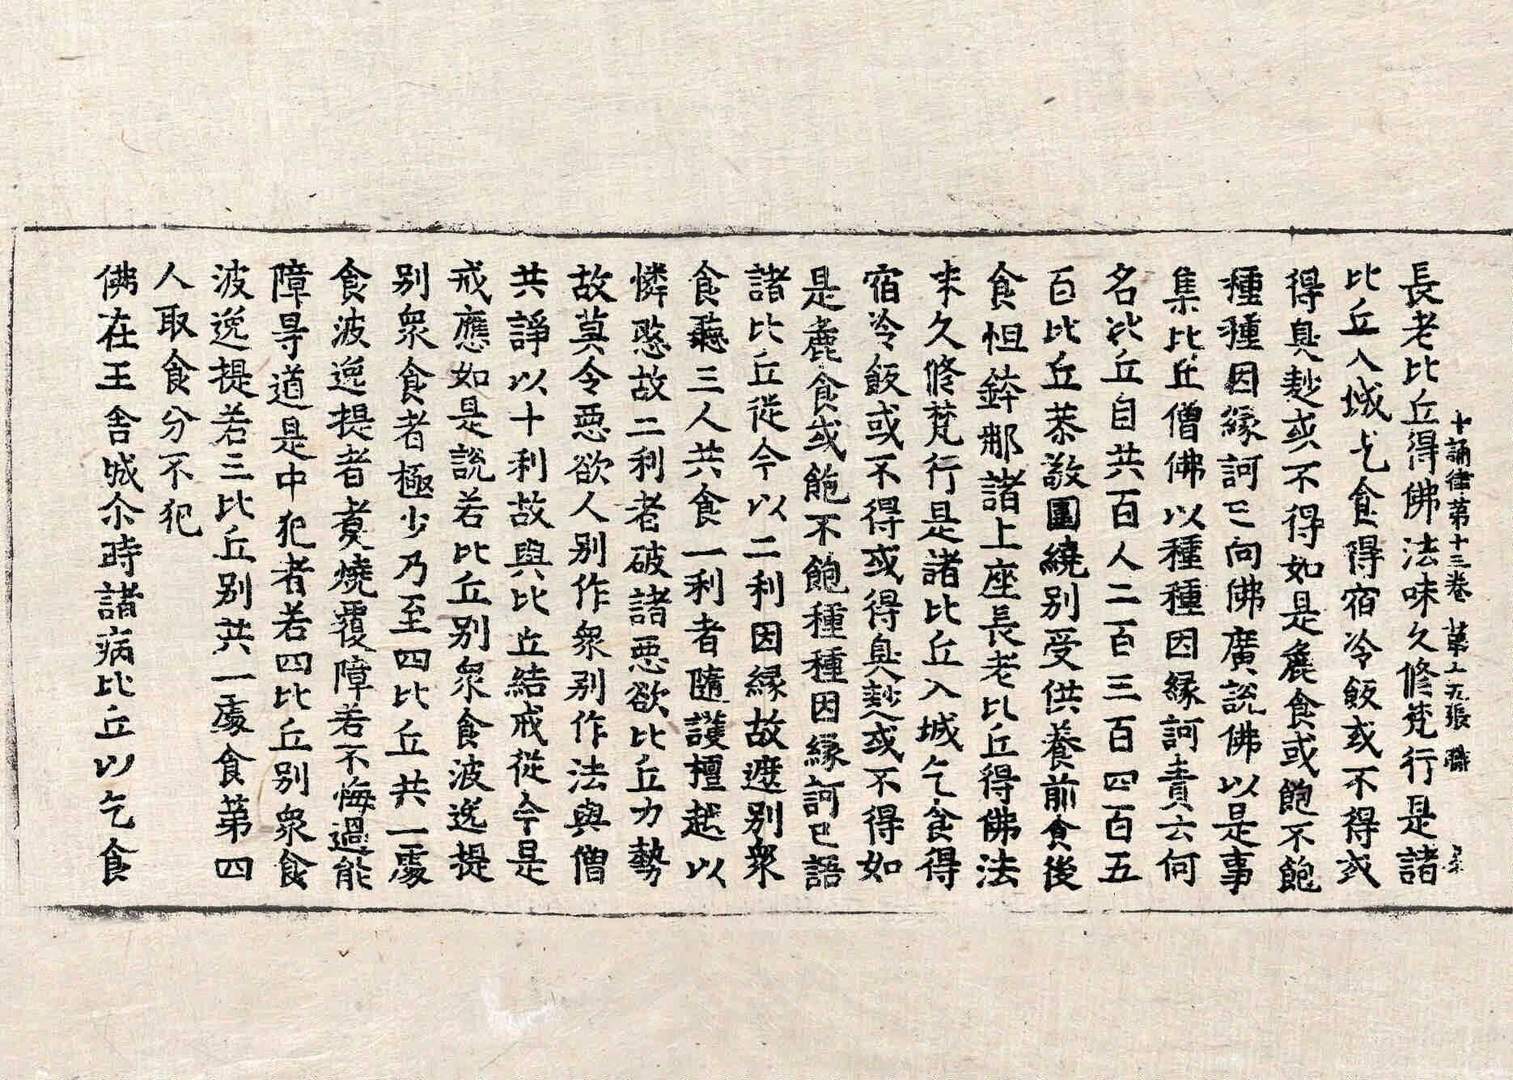 十誦律第十三卷　第二九張　職
長老比丘得佛法味久修梵行是諸
比丘入城乞食得宿冷飯或不得或
得臭麨或不得如是麁食或飽不飽
種種因緣訶已向佛廣說佛以是事
集比丘僧佛以種種因緣訶責云何
名比丘自共百人二百三百四百五
百比丘恭敬圍繞別受供養前食後
食怛鉢那諸上座長老比丘得佛法
味久修梵行是諸比丘入城乞食得
宿冷飯或不得或得臭麨或不得如
是麁食或飽不飽種種因緣訶已語
諸比丘從今以二利因緣故遮別衆
食聽三人共食一利者隨護檀越以
憐愍故二利者破諸惡欲比丘力勢
故莫令惡欲人別作衆別作法與僧
共諍以十利故與比丘結戒從今是
戒應如是說若比丘別衆食波逸提
別衆食者極少乃至四比丘共一處
食波逸提者煑燒覆障若不悔過能
障㝵道是中犯者若四比丘別衆食
波逸提若三比丘別共一處食第四
人取食分不犯
佛在王舍城尒時諸病比丘以乞食